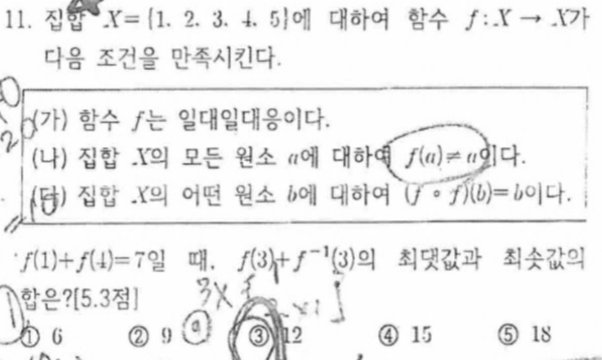 11. 집합 X = {1, 2, 3, 4, 5}에 대하여 함수 f : X → X가
다음 조건을 만족시킨다.
(가) 함수 f는 일대일대응이다.
(나) 집합 X의 모든 원소 a에 대하여 f(a) ≠ a이다.
(다) 집합 X의 어떤 원소 b에 대하여 (f ∘ f)(b) = b이다.
f(1) + f(4) = 7일 때, f(3) + f⁻¹(3)의 최댓값과 최솟값의
합은?[5.3점]
① 6 ② 9 ③ 12 ④ 15 ⑤ 18